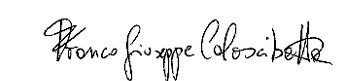 Franco Giuseppe Coloscibetta